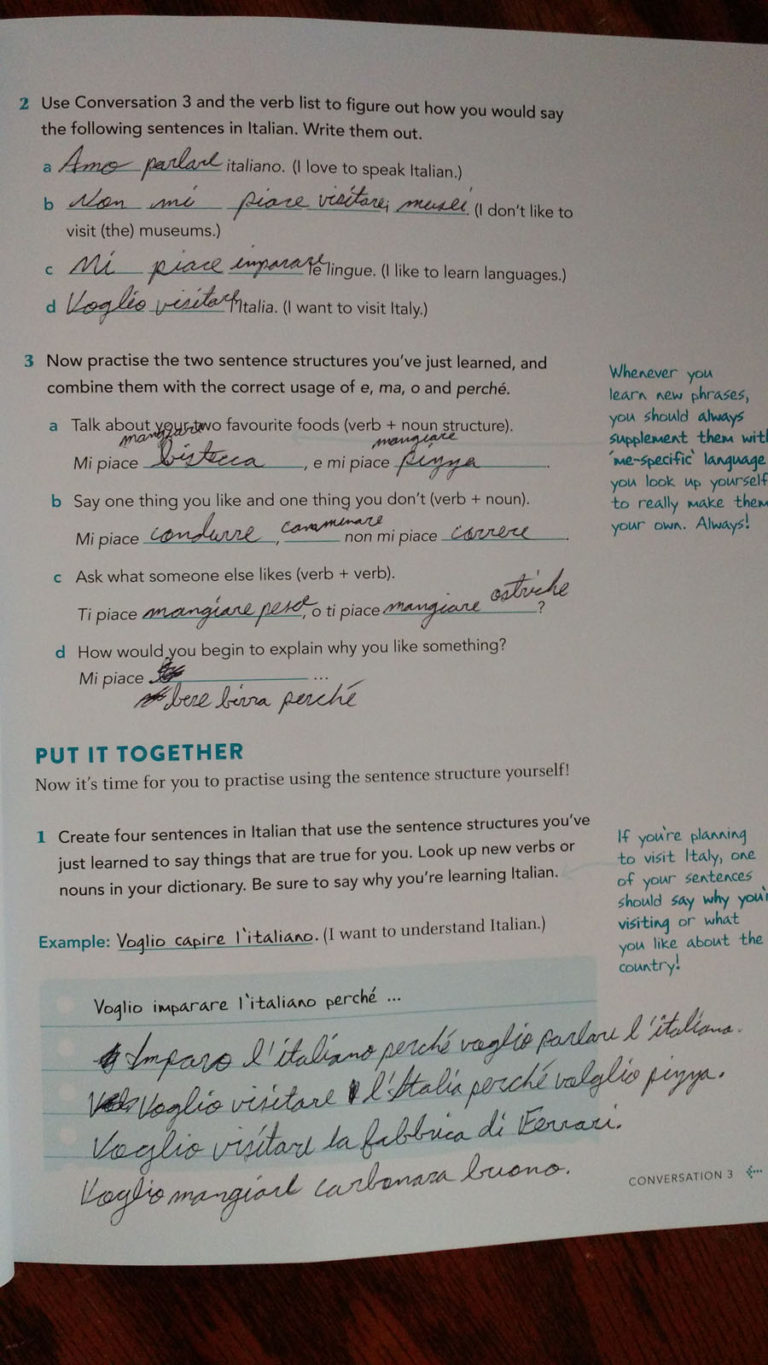 2 Use Conversation 3 and the verb list to figure out how you would say
the following sentences in Italian. Write them out.
a Amo parlare italiano. (I love to speak Italian.)
b Non mi piace visitare i musei. (I don't like to
visit (the) museums.)
c Mi piace imparare le lingue. (I like to learn languages.)
d Voglio visitare l'Italia. (I want to visit Italy.)
3 Now practise the two sentence structures you've just learned, and
combine them with the correct usage of e, ma, o and perché.
a Talk about your two favourite foods (verb + noun structure).
mangiare mangiare
Mi piace bistecca, e mi piace pizza.
b Say one thing you like and one thing you don't (verb + noun).
camminare
Mi piace condurre, non mi piace correre.
c Ask what someone else likes (verb + verb).
ostriche
Ti piace mangiare pesce, o ti piace mangiare ?
d How would you begin to explain why you like something?
Mi piace ...
bere birra perché
PUT IT TOGETHER
Now it's time for you to practise using the sentence structure yourself!
1 Create four sentences in Italian that use the sentence structures you've
just learned to say things that are true for you. Look up new verbs or
nouns in your dictionary. Be sure to say why you're learning Italian.
Example: Voglio capire l'italiano. (I want to understand Italian.)
Voglio imparare l'italiano perché ...
Imparo l'italiano perché voglio parlare l'italiano.
Voglio visitare l'Italia perché valglio pizza.
Voglio visitare la fabbrica di Ferrari.
Voglio mangiare carbonara buono.
Whenever you
learn new phrases,
you should always
supplement them with
'me-specific' language
you look up yourself
to really make them
your own. Always!
If you're planning
to visit Italy, one
of your sentences
should say why you're
visiting or what
you like about the
country!
CONVERSATION 3